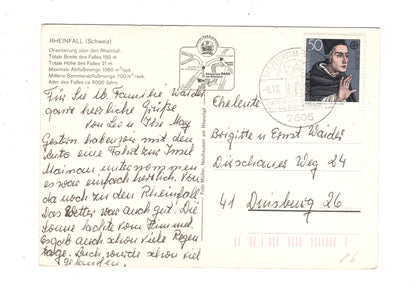 RHEINFALL (Schweiz)
Orientierung über den Rheinfall:
Totale Breite des Falles 150 m
Totale Höhe des Falles 21 m
Maximale Abflußmenge 1080 m³/sek.
Mittlere Sommerabflußmenge 700 m³/sek.
Alter des Falles ca. 6000 Jahre
Für Sie lb. Familie Waider
ganz herzliche Grüße
von Leo u. Ilse May
Gestern haben wir mit dem
Auto eine Fahrt zur Insel
Mainau unternommen
es war einfach herrlich. Von
da noch zu den Rheinfall
Das Wetter war auch gut. Die
Sonne lachte vom Himmel.
Es gab auch schon viele Regen
tage. Auch wurde schon viel
Foto Müller, Neuhausen am Rheinfall
50
7805
Eheleute
Brigitte u Ernst Waider
Dirschauer Weg 24
41 Duisburg 26